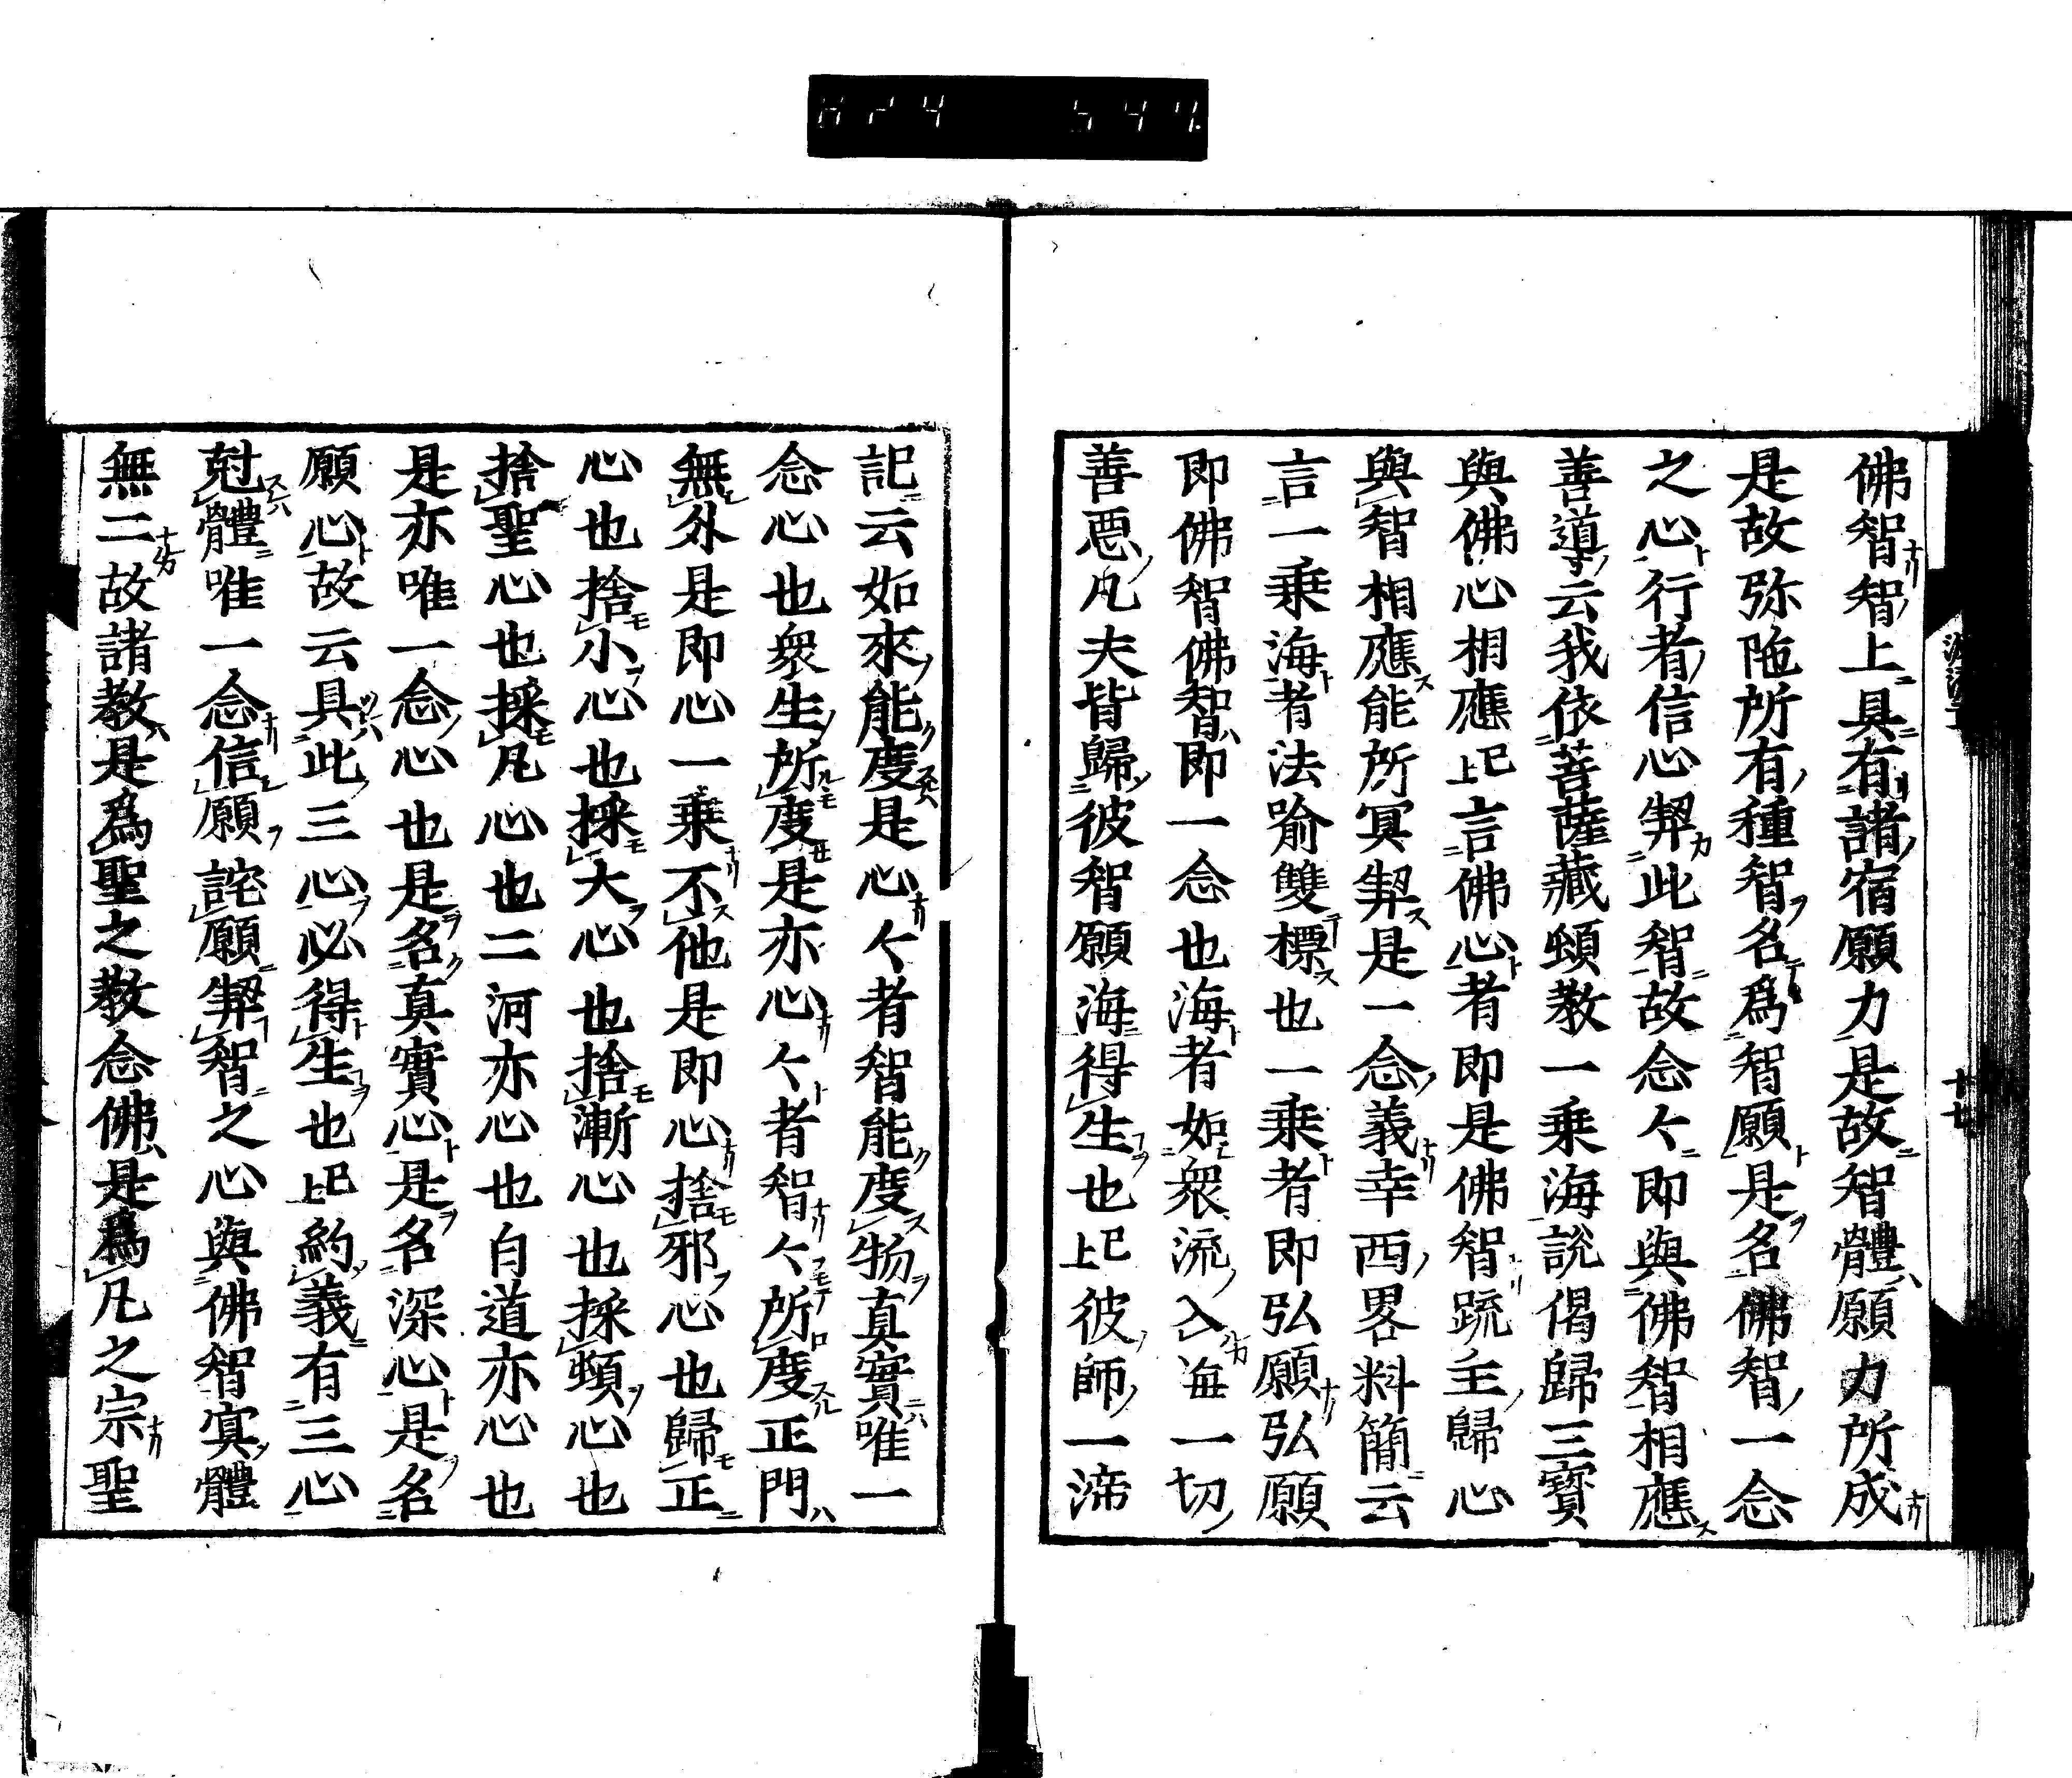 佛智智上具有諸宿願力是故智體願力所成
是故弥陁所有種智名爲智願是名佛智一念
之心行者信心契此智故念々即與佛智相應
善導云我依菩薩藏頓教一乗海說偈歸三寳
與佛心相應已上言佛心者即是佛智䟽主歸心
與智相應能所冥契是一念義幸西畧料簡云
言一乗海者法喩雙標也一乗者即弘願弘願
即佛智佛智即一念也海者如衆流入海一切
善悪凡夫皆歸彼智願海得生也已上彼師一渧
記云如來能度是心々者智能度物真實唯一
念心也衆生所度是亦心々者智々所度正門
無外是即心一乗不他是即心捨邪心也歸正
心也捨小心也採大心也捨漸心也採頓心也
捨聖心也採凡心也二河亦心也白道亦心也
是亦唯一念心也是名真實心是名深心是名
願心故云具此三心必得生也已上約義有三心
尅體唯一念信願詫願契智之心與佛智冥體
無二故諸教是爲聖之教念佛是爲凡之宗聖
十七